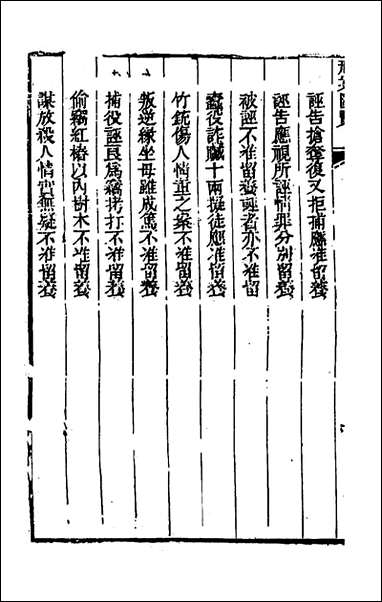 刑案匯覽
誣告搶奪復又拒捕應准留養
誣告應視所誣情罪分別留養
被誣不准留養誣者亦不准留
蠹役詐贓十兩擬徒應准留養
竹銃傷人情重之案不准留養
叛逆緣坐母雖成篤不准留養
捕役誣良為竊拷打不准留養
偷竊紅樁以內樹木不准留養
謀故殺人情實無疑不准留養